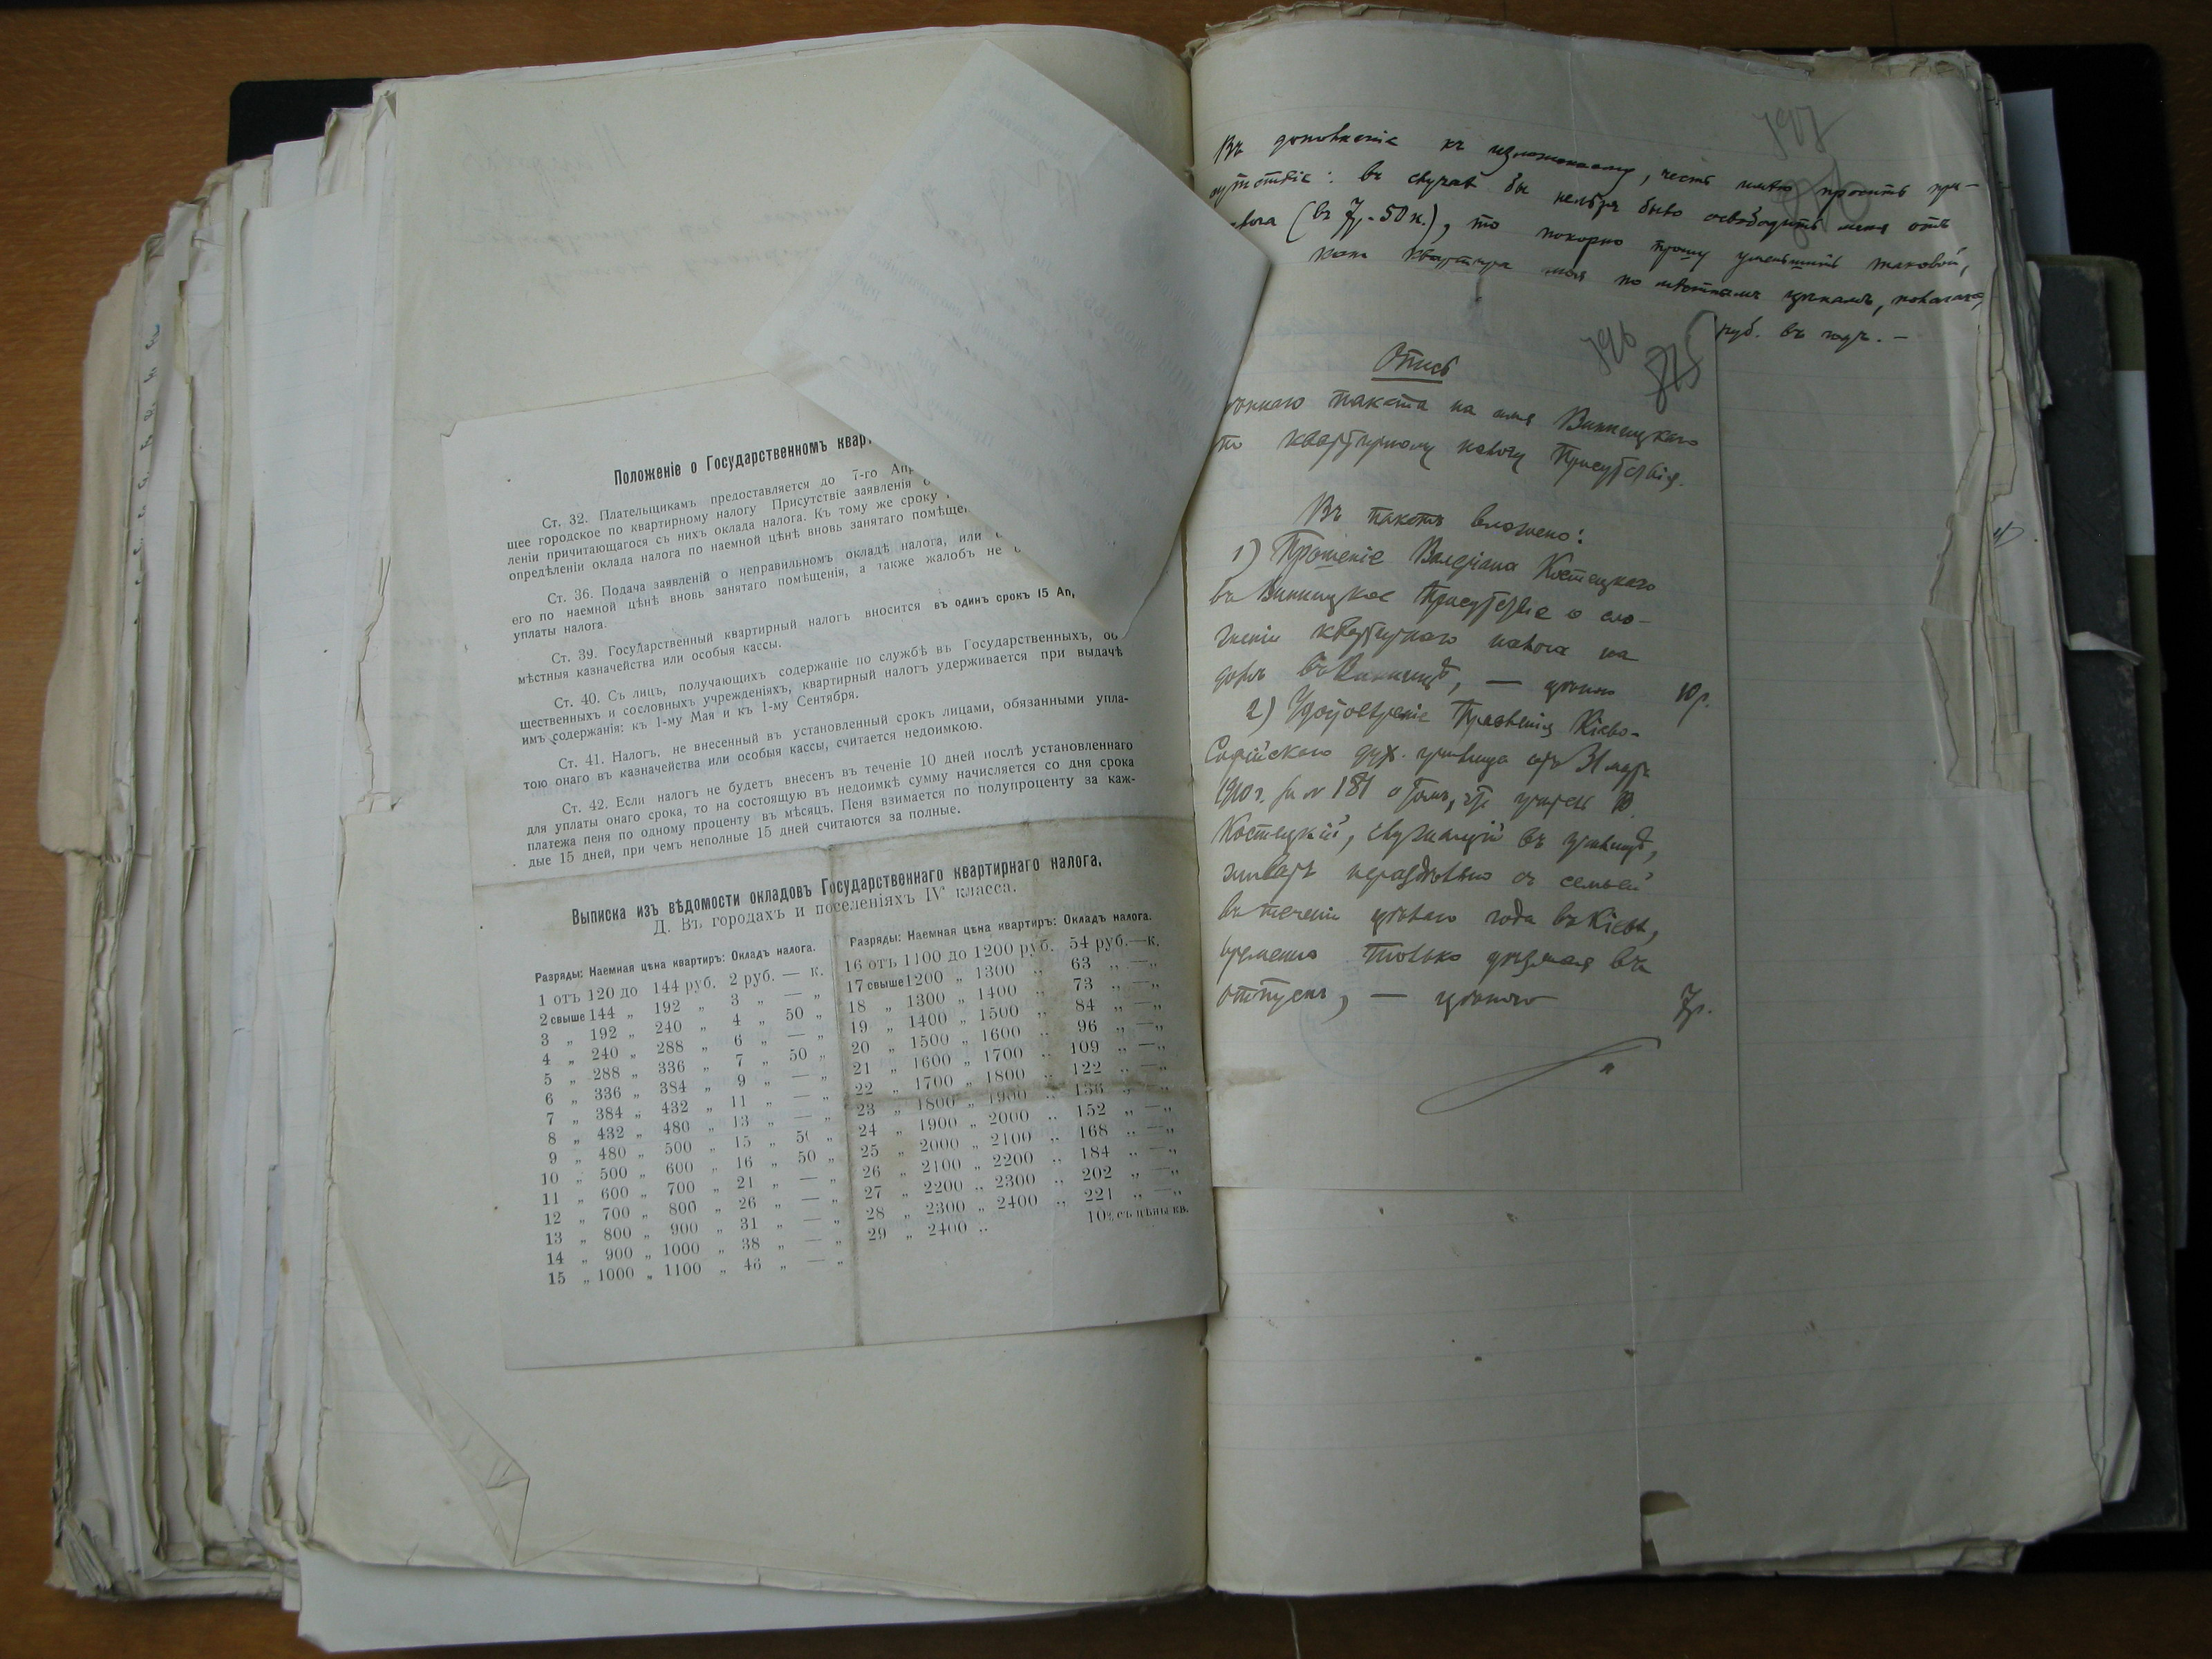 Положеніе о Государственномъ кварт
Ст. 32. Плательщикамъ предоставляется до 7-го Апр
щее городское по квартирному налогу Присутствіе заявленія о
леніи причитающагося съ нихъ оклада налога. Къ тому же сроку
опредѣленіи оклада налога по наемной цѣнѣ вновь занятаго помѣще
Ст. 36. Подача заявленій о неправильномъ окладѣ налога, или
его по наемной цѣнѣ вновь занятаго помѣщенія, а также жалобъ не
уплаты налога.
Ст. 39. Государственный квартирный налогъ вносится въ одинъ срокъ 15 Ап
мѣстныя казначейства или особыя кассы.
Ст. 40. Съ лицъ, получающихъ содержаніе по службѣ въ Государственныхъ, об
щественныхъ и сословныхъ учрежденіяхъ, квартирный налогъ удерживается при выдачѣ
имъ содержанія: къ 1-му Мая и къ 1-му Сентября.
Ст. 41. Налогъ, не внесенный въ установленный срокъ лицами, обязанными упла-
тою онаго въ казначейства или особыя кассы, считается недоимкою.
Ст. 42. Если налогъ не будетъ внесенъ въ теченіе 10 дней послѣ установленнаго
для уплаты онаго срока, то на состоящую въ недоимкѣ сумму начисляется со дня срока
платежа пеня по одному проценту въ мѣсяцъ. Пеня взимается по полупроценту за каж-
дые 15 дней, при чемъ неполные 15 дней считаются за полные.
Выписка изъ вѣдомости окладовъ Государственнаго квартирнаго налога.
Д. Въ городахъ и поселеніяхъ IV класса.
Разряды: Наемная цѣна квартиръ: Окладъ налога.
1 отъ 120 до 144 руб. 2 руб. — к.
2 свыше 144 „ 192 „ 3 „ — „
3 „ 192 „ 240 „ 4 „ 50 „
4 „ 240 „ 288 „ 6 „ — „
5 „ 288 „ 336 „ 7 „ 50 „
6 „ 336 „ 384 „ 9 „ — „
7 „ 384 „ 432 „ 11 „ — „
8 „ 432 „ 480 „ 13 „ — „
9 „ 480 „ 500 „ 15 „ 50 „
10 „ 500 „ 600 „ 16 „ 50 „
11 „ 600 „ 700 „ 21 „ — „
12 „ 700 „ 800 „ 26 „ — „
13 „ 800 „ 900 „ 31 „ — „
14 „ 900 „ 1000 „ 38 „ — „
15 „ 1000 „ 1100 „ 46 „ — „
Разряды: Наемная цѣна квартиръ: Окладъ налога.
16 отъ 1100 до 1200 руб. 54 руб.—к.
17 свыше 1200 „ 1300 „ 63 „ —„
18 „ 1300 „ 1400 „ 73 „ —„
19 „ 1400 „ 1500 „ 84 „ —„
20 „ 1500 „ 1600 „ 96 „ —„
21 „ 1600 „ 1700 „ 109 „ —„
22 „ 1700 „ 1800 „ 122 „ —„
23 „ 1800 „ 1900 „ 136 „ —„
24 „ 1900 „ 2000 „ 152 „ —„
25 „ 2000 „ 2100 „ 168 „ —„
26 „ 2100 „ 2200 „ 184 „ —„
27 „ 2200 „ 2300 „ 202 „ —„
28 „ 2300 „ 2400 „ 221 „ —„
29 „ 2400 „ 10% съ цѣны кв.
Въ дополненіе къ изложенному, честь имѣю просить при-
сутствіе: въ случаѣ бы нельзя было освободить меня отъ
налога (въ 7р. 50 к.), то покорно прошу уменьшить таковой,
квартира моя по мѣстнымъ цѣнамъ,
руб. въ годъ. —
796
815
Опись
пакета на имя Винницкаго
по квартирному налогу Присутствія.
Въ пакетъ вложено:
1) Прошеніе Валеріана Костецкаго
въ Винницкое Присутствіе о сло-
женіи квартирнаго налога на
домъ въ Винницѣ, — цѣною 10 р.
2) Удостовѣреніе Правленія Кіево-
Софійскаго дух. училища отъ 31 мар.
1910 г. за № 181 о томъ, что учитель В.
Костецкій, служащій въ училищѣ,
живетъ нераздѣльно съ семьей
въ теченіи цѣлаго года въ Кіевѣ,
временно только уѣзжая въ
отпускъ, — цѣною 7р.